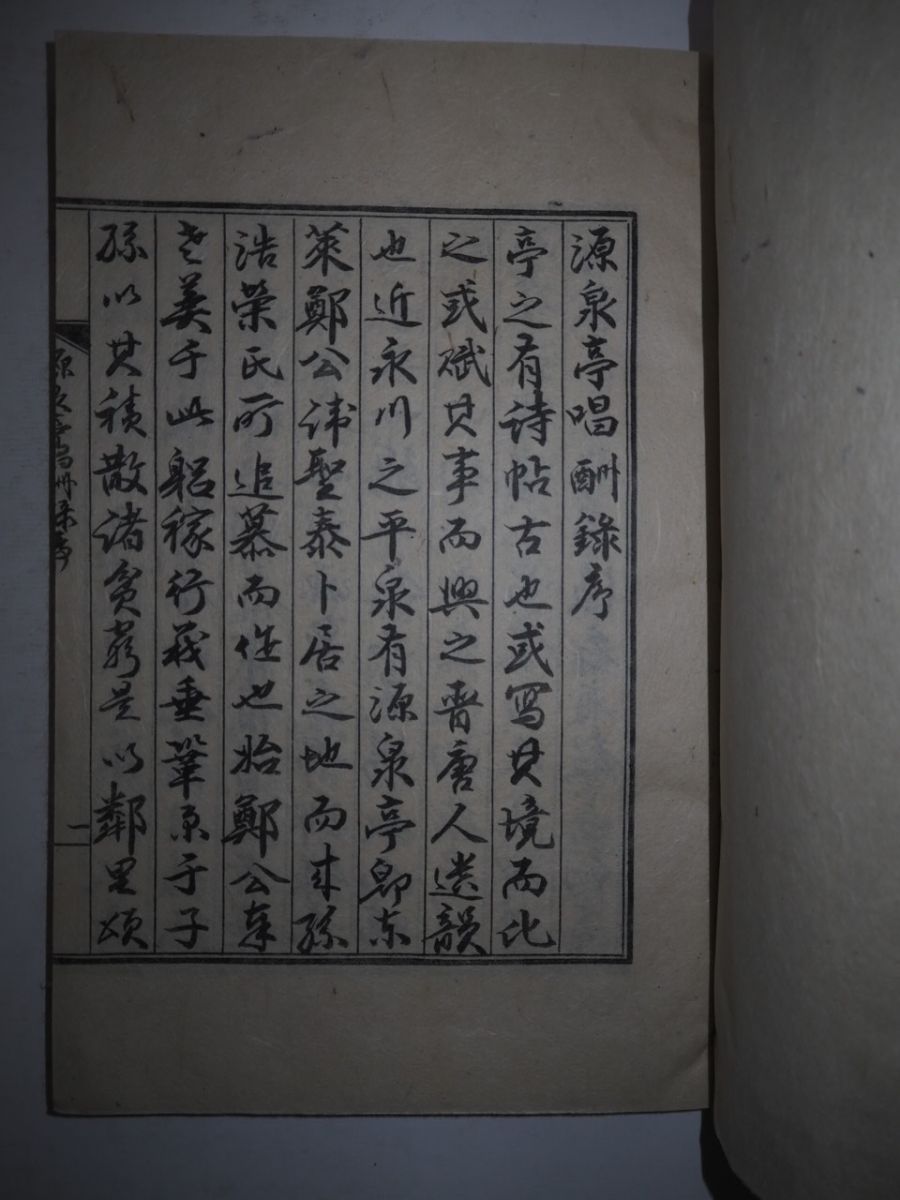 源泉亭唱酬錄序
亭之有詩帖古也或寫其境而比
之或賦其事而興之晉唐人遺韻
也近永川之平泉有源泉亭卽東
萊鄭公諱聖泰卜居之地而來孫
浩榮氏所追慕而作也始鄭公奉
老奠于此躬稼行義垂鞏原于子
孫以其積散諸貧窮是以鄰里頌
源泉亭唱酬錄序
一